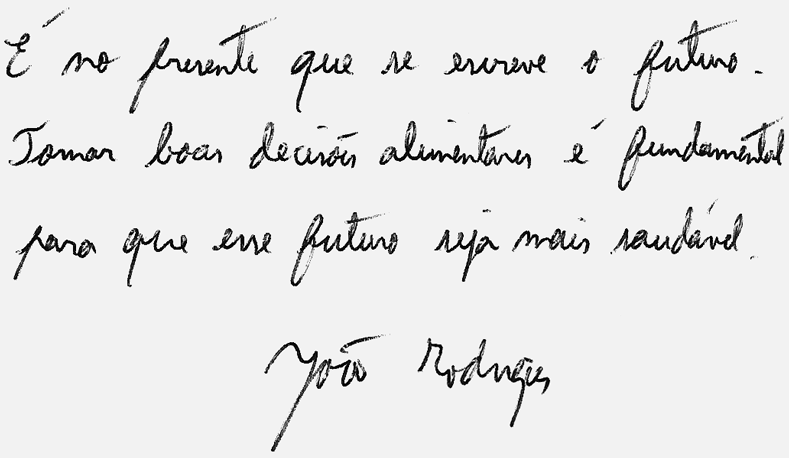 É no presente que se escreve o futuro.
Tomar boas decisões alimentares é fundamental
para que esse futuro seja mais saudável.
João Rodrigues